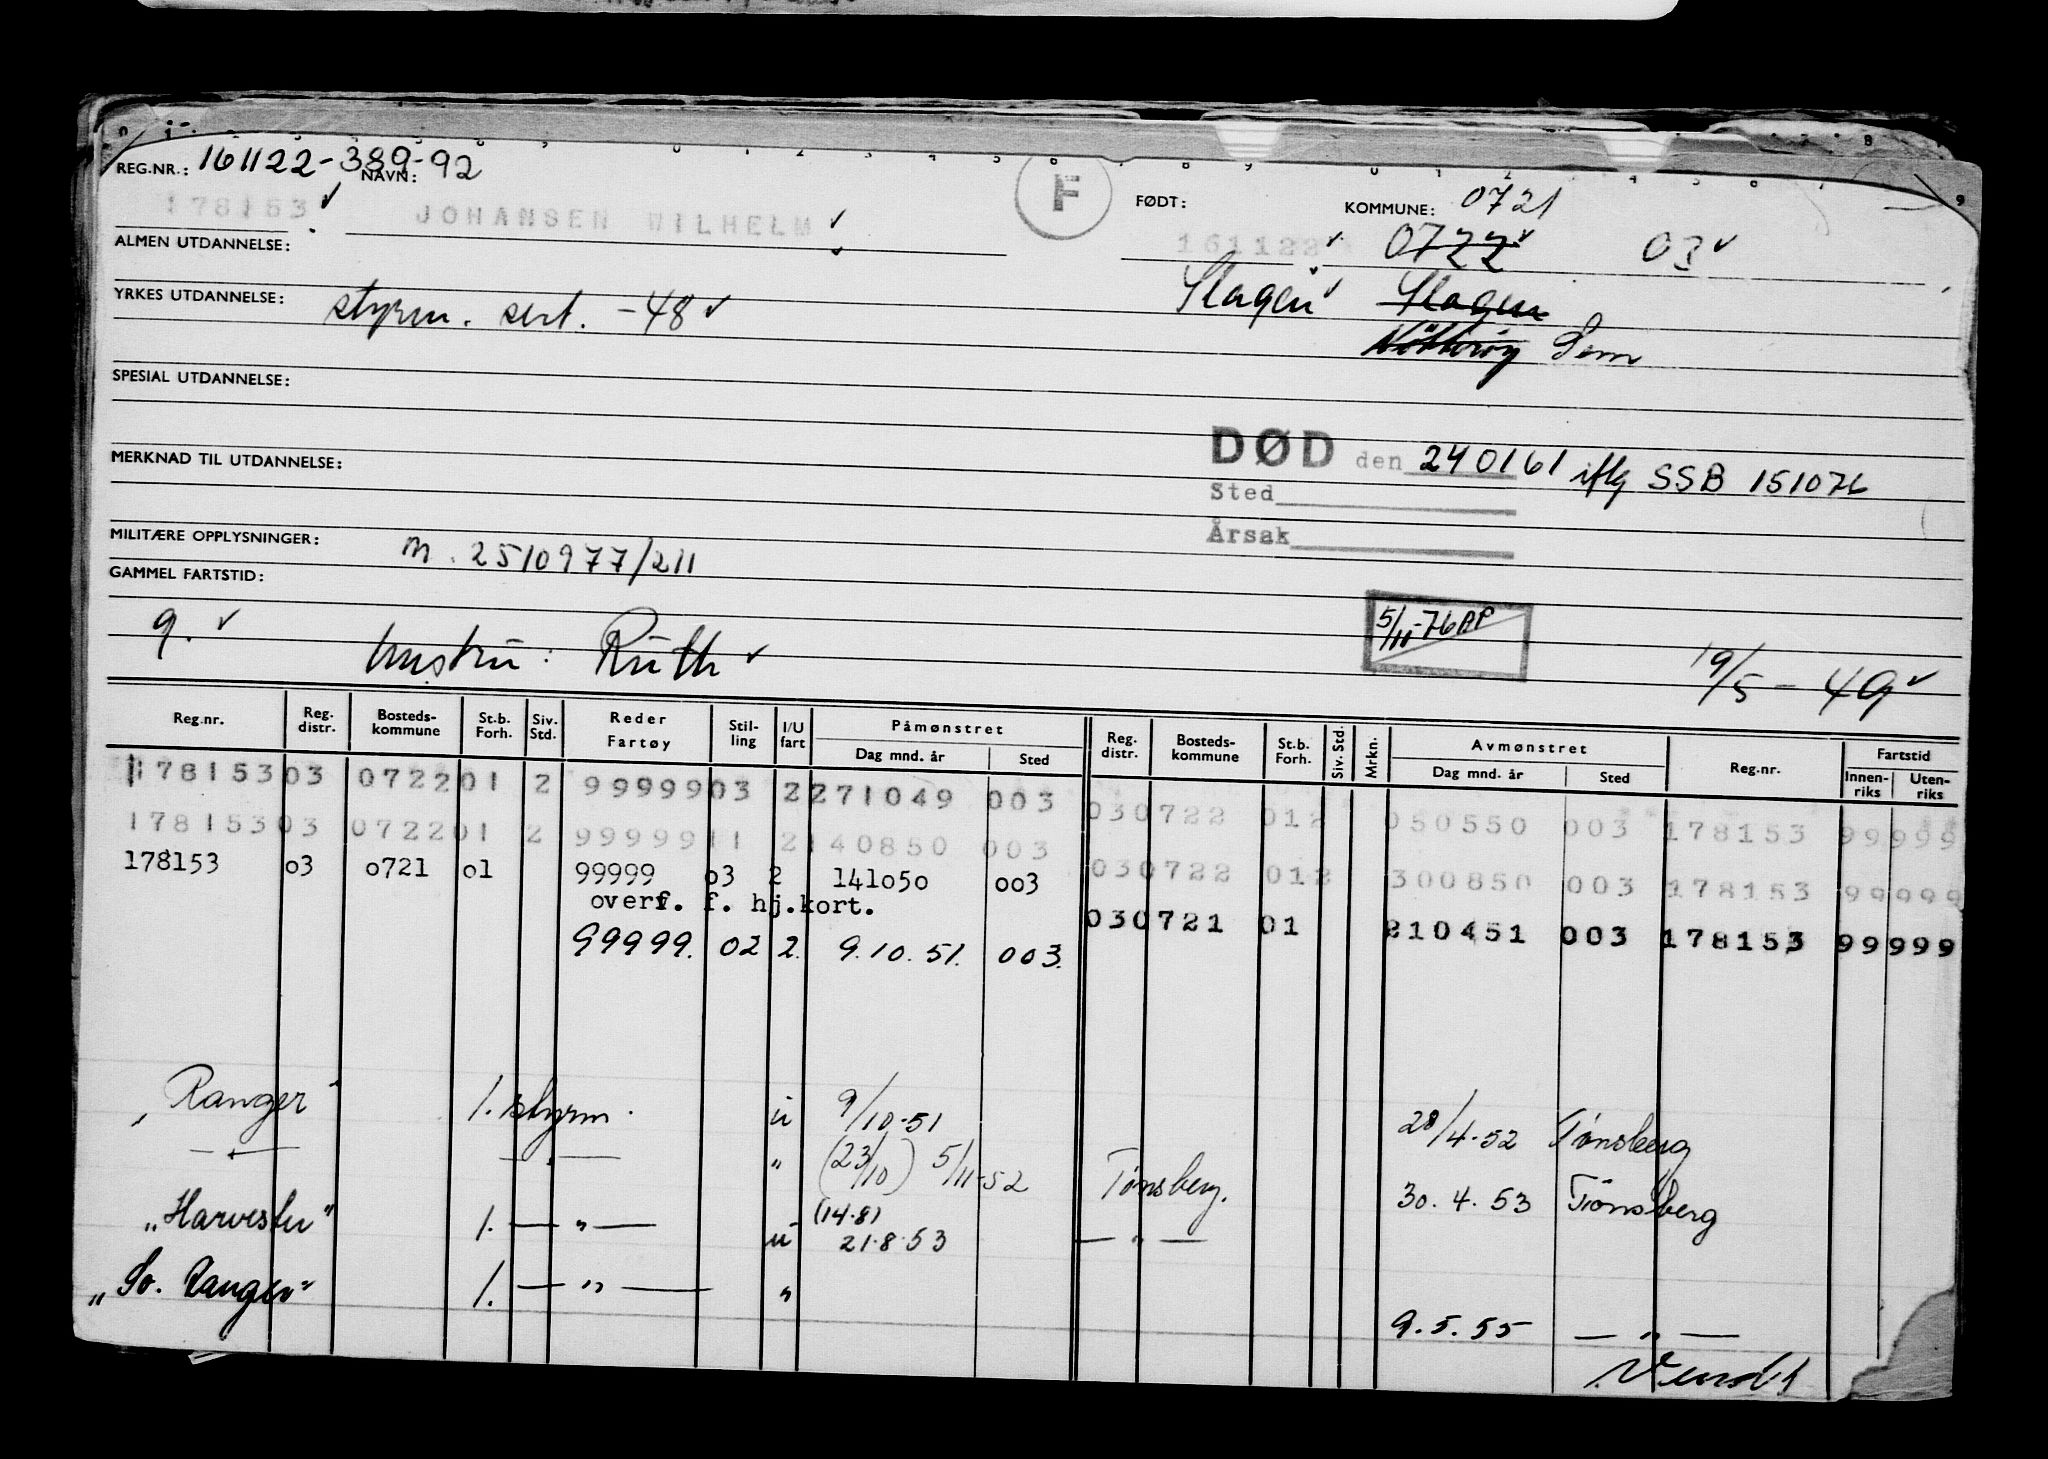 REG.NR.: 161122-389-92 NAVN: F FØDT: KOMMUNE: 0721
178153 JOHANSEN WILHELM 161122 0722 03
ALMEN UTDANNELSE:
Slagen Slagen
YRKES UTDANNELSE: styrm. sert. -48
Nøtterøy Sem
SPESIAL UTDANNELSE:
DØD den 240161 iflg SSB 151076
MERKNAD TIL UTDANNELSE:
Sted
Årsak
MILITÆRE OPPLYSNINGER: M. 2510977/211
GAMMEL FARTSTID:
9. hustru: Ruth
5/11-76 AP
19/5-49
Reg.nr. Reg. distr. Bosteds-kommune St.b. Forh. Siv. Std. Reder Fartøy Stil-ling I/U fart Påmønstret Dag mnd. år Sted Reg. distr. Bosteds-kommune St.b. Forh. Siv. Std. Mrkn. Avmønstret Dag mnd. år Sted Reg.nr. Fartstid Innen-riks Uten-riks
178153 03 0722 01 2 99999 03 2 271049 003 03 0722 01 2 050550 003 178153 99999
178153 03 0722 01 2 99999 11 2 140850 003 03 0722 01 2 300850 003 178153 99999
178153 03 0721 01 99999 03 2 141050 003 03 0721 01 210451 003 178153 99999
overf. f. hj.kort.
99999. 02 2. 9.10.51. 003.
"Ranger" 1. styrm. u 9/10-51 28/4-52 Tønsberg
— " — — " — " (23/10) 5/11-52 Tønsberg. 30.4.53 Tønsberg
"Harvester" 1. — " — u (14.8) 21.8.53 — " —
"So. Ranger" 1. — " — " 9.5.55 — " —
Vend!